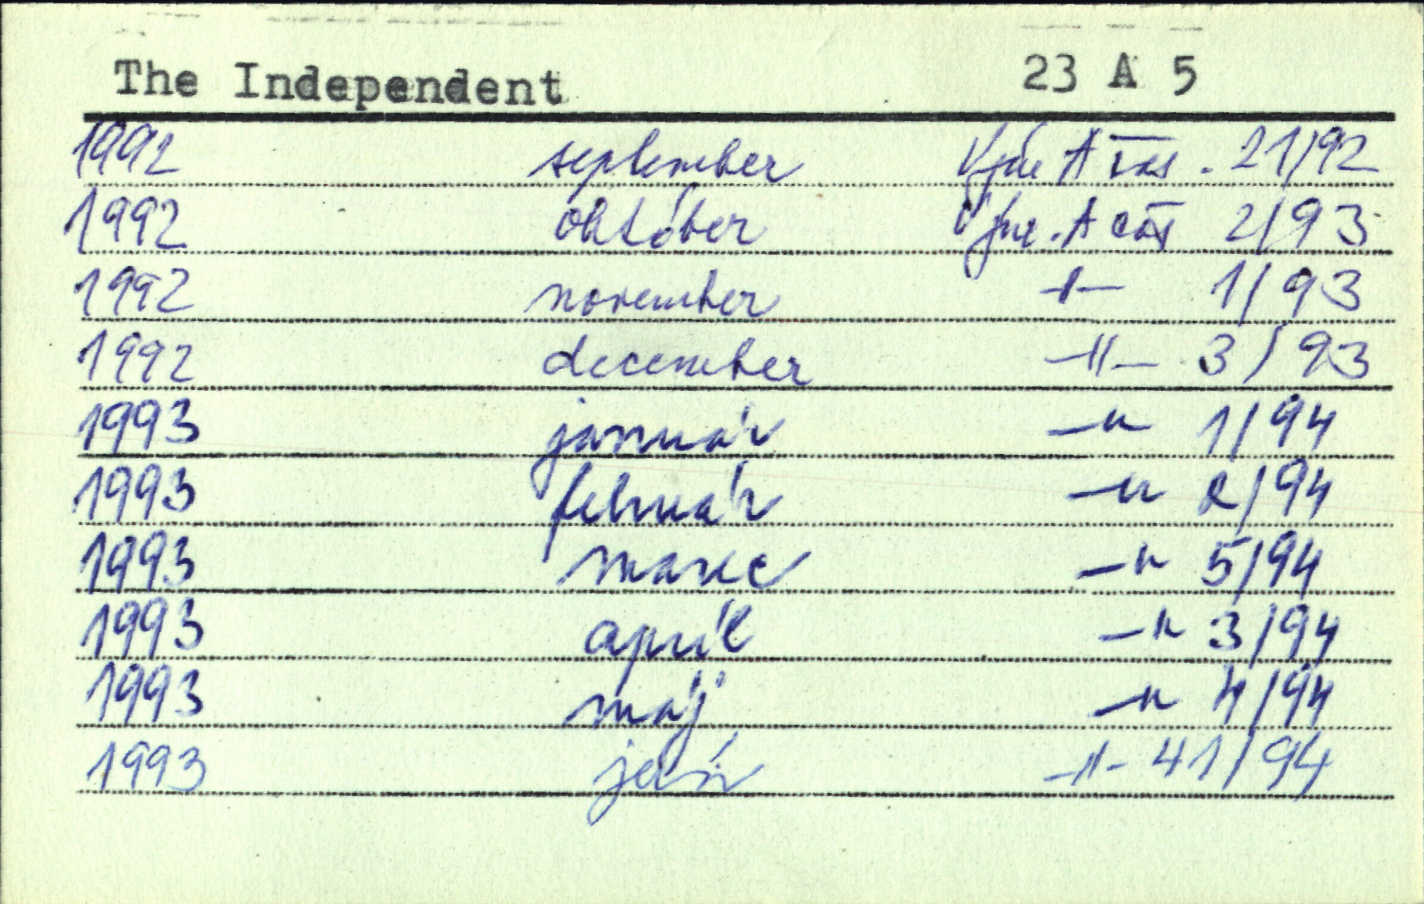 The Independent 23 A 5
1992 september A 21/92
1992 október A 2/93
1992 november -"- 1/93
1992 december -"- 3/93
1993 január -"- 1/94
1993 február -"- 2/94
1993 marec -"- 5/94
1993 apríl -"- 3/94
1993 máj -"- 4/94
1993 jún -"- 41/94